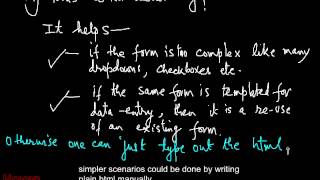 It helps—
✓— if the form is too complex like many
dropdowns, checkboxes etc.
✓— if the same form is templated for
data-entry, then it is a re-use
of an existing form.
Otherwise one can just type out the html.
simpler scenarios could be done by writing
plain html manually